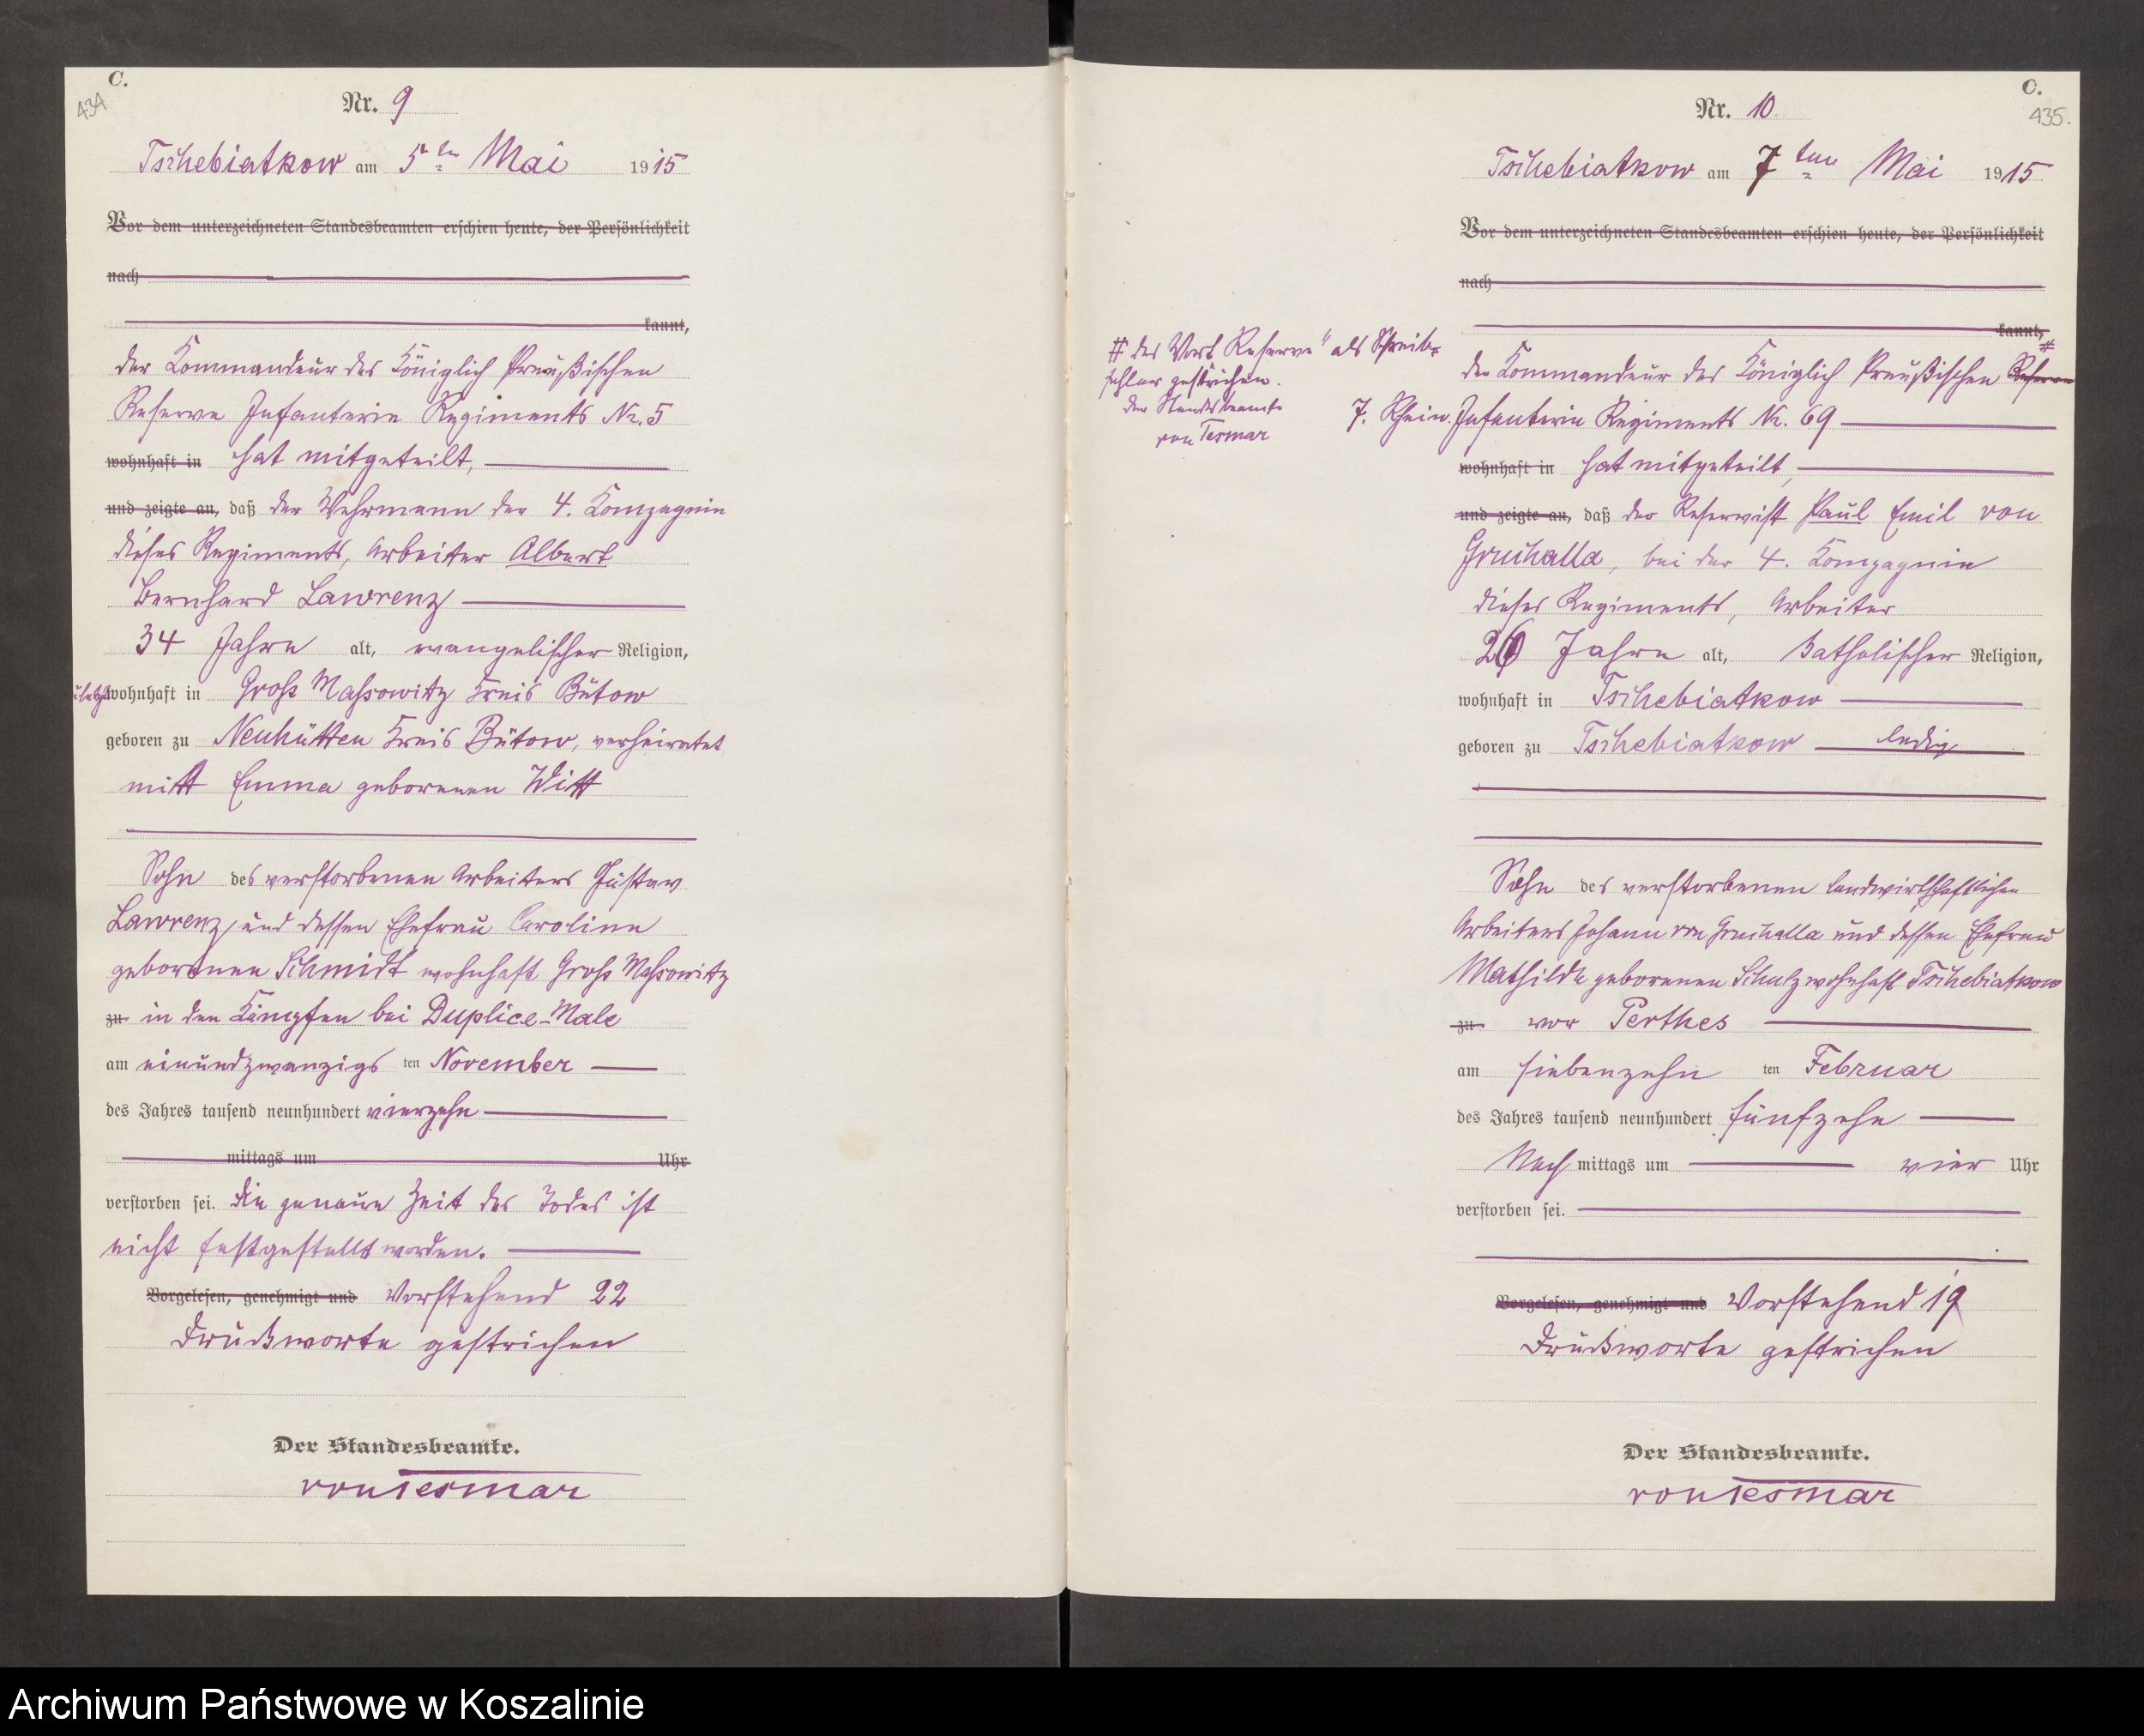 C.
434
Nr. 9
Tschebiatkow am 5ten Mai 1915
Vor dem unterzeichneten Standesbeamten erschien heute, der Persönlichkeit
nach
kannt,
der Kommandeur des Königlich Preußischen
Reserve Infanterie Regiments Nr. 5
wohnhaft in hat mitgeteilt,
und zeigte an, daß der Wehrmann der 4. Kompagnie
dieses Regiments, Arbeiter Albert
Bernhard Lawrenz
34 Jahre alt, evangelischer Religion,
wohnhaft in Gross Massowitz Kreis Bütow
geboren zu Neuhütten Kreis Bütow, verheiratet
mitt Emma geborenen Witt
Sohn des verstorbenen Arbeiters Gustav
Lawrenz und dessen Ehefrau Caroline
geborenen Schmidt wohnhaft Gross Massowitz
zu in den Kämpfen bei Duplice-Male
am einundzwanzigs ten November
des Jahres tausend neunhundert vierzehn
mittags um Uhr
verstorben sei. Die genaue Zeit des Todes ist
nicht festgestellt worden.
Vorgelesen, genehmigt und Vorstehend 22
Druckworte gestrichen
Der Standesbeamte.
von Tesmar
C.
435.
Nr. 10
Tschebiatkow am 7ten Mai 1915
Vor dem unterzeichneten Standesbeamten erschien heute, der Persönlichkeit
nach
kannt,
# das Wort Reserve" als Schreib-
fehler gestrichen.
der Standesbeamte
von Tesmar
der Kommandeur des Königlich Preußischen Reserve #
7. Rhein. Infanterie Regiments Nr. 69
wohnhaft in hat mitgeteilt,
und zeigte an, daß der Reservist Paul Emil von
Gruchalla, bei der 4. Kompagnie
dieses Regiments, Arbeiter
26 Jahre alt, katholischer Religion,
wohnhaft in Tschebiatkow
geboren zu Tschebiatkow ledig
Sohn des verstorbenen landwirthschaftlichen
Arbeiters Johann von Gruchalla und dessen Ehefrau
Mathilde geborenen Schulz wohnhaft Tschebiatkow
zu vor Perthes
am siebenzehn ten Februar
des Jahres tausend neunhundert fünfzehn
Nach mittags um vier Uhr
verstorben sei.
Vorgelesen, genehmigt und Vorstehend 19
Druckworte gestrichen
Der Standesbeamte.
von Tesmar
Archiwum Państwowe w Koszalinie